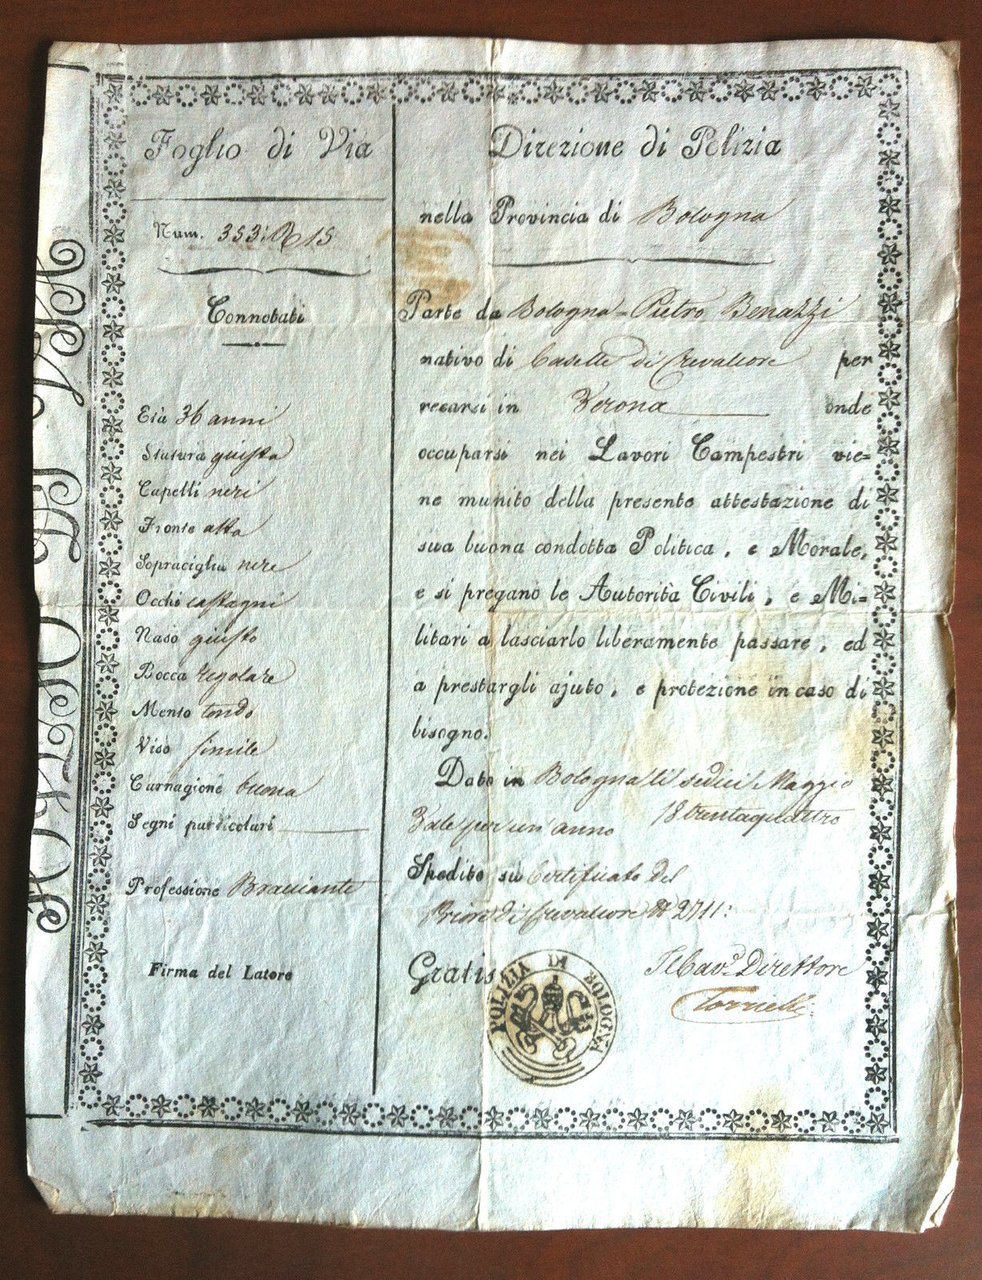 Foglio di Via
Num. 353
Connotati
Età 36 anni
Statura giusta
Capelli neri
Fronte alta
Sopraciglia nere
Occhi castagni
Naso giusto
Bocca regolare
Mento tondo
Viso simile
Carnagione buona
Segni particolari
Professione Bracciante
Firma del Latore
Direzione di Polizia
nella Provincia di Bologna
Parte da Bologna - Pietro Benazzi
nativo di Caselle di Crevalcore per
recarsi in Verona onde
occuparsi nei Lavori Campestri vie=
ne munito della presente attestazione di
sua buona condotta Politica, e Morale,
e si pregano le Autorità Civili, e Mi=
litari a lasciarlo liberamente passare, ed
a prestargli ajuto, e protezione in caso di
bisogno.
Dato in Bologna li sedici Maggio
18trentaquattro
Vale per un anno
Spedito su Certificato del
Priore di Crevalcore 2711:
Gratis
Il Cav.e Direttore
POLIZIA DI BOLOGNA